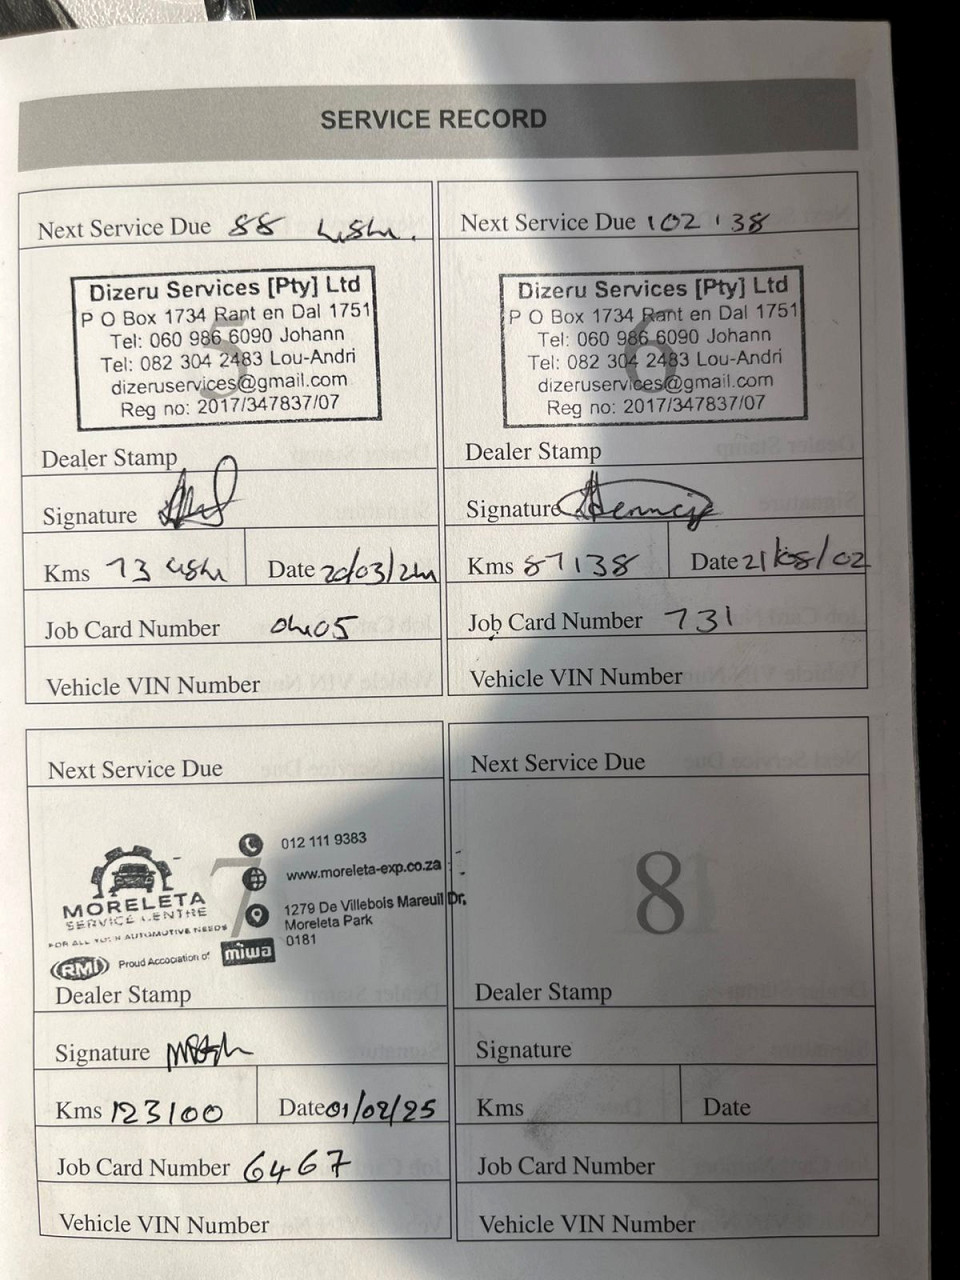 SERVICE RECORD
Next Service Due 88
Dizeru Services [Pty] Ltd
P O Box 1734 Rant en Dal 1751
Tel: 060 986 6090 Johann
Tel: 082 304 2483 Lou-Andri
dizeruservices@gmail.com
Reg no: 2017/347837/07
5
Dealer Stamp
Signature
Kms 73
Date 20/03/24
Job Card Number 0405
Vehicle VIN Number
Next Service Due 102 138
Dizeru Services [Pty] Ltd
P O Box 1734 Rant en Dal 1751
Tel: 060 986 6090 Johann
Tel: 082 304 2483 Lou-Andri
dizeruservices@gmail.com
Reg no: 2017/347837/07
6
Dealer Stamp
Signature
Kms 87138
Date
Job Card Number 731
Vehicle VIN Number
Next Service Due
7
MORELETA
SERVICE CENTRE
FOR ALL YOUR AUTOMOTIVE NEEDS
RMI Proud Accociation of miwa
012 111 9383
www.moreleta-exp.co.za
1279 De Villebois Mareuil Dr,
Moreleta Park
0181
Dealer Stamp
Signature
Kms 123100
Date 01/02/25
Job Card Number 6467
Vehicle VIN Number
Next Service Due
8
Dealer Stamp
Signature
Kms
Date
Job Card Number
Vehicle VIN Number